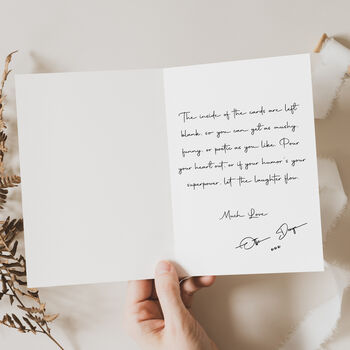 The inside of the cards are left
blank, so you can get as mushy,
funny, or poetic as you like. Pour
your heart out, or if your humor's your
superpower, let the laughter flow.
Much Love
xxx